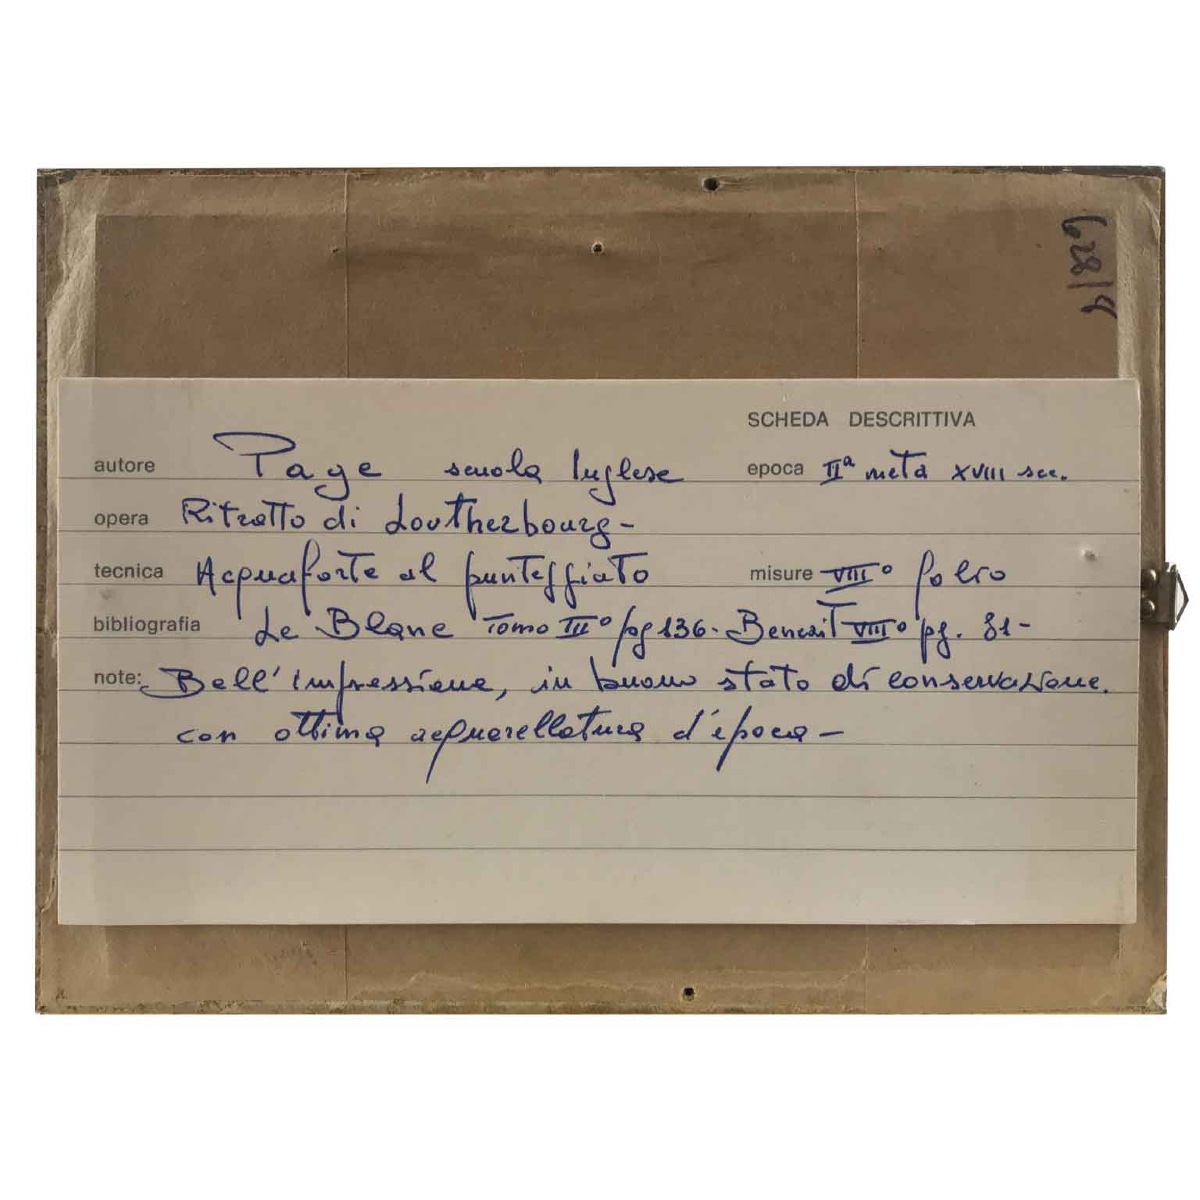 628/9
SCHEDA DESCRITTIVA
autore Page scuola Inglese epoca IIª metà XVIII sec.
opera Ritratto di Loutherbourg-
tecnica Acquaforte al punteggiato misure VIIIº folio
bibliografia Le Blanc Tomo IIIº pg 136. Benezit VIIIº pg. 81-
note: Bell'impressione, in buono stato di conservazione.
con ottima acquarellatura d'epoca-